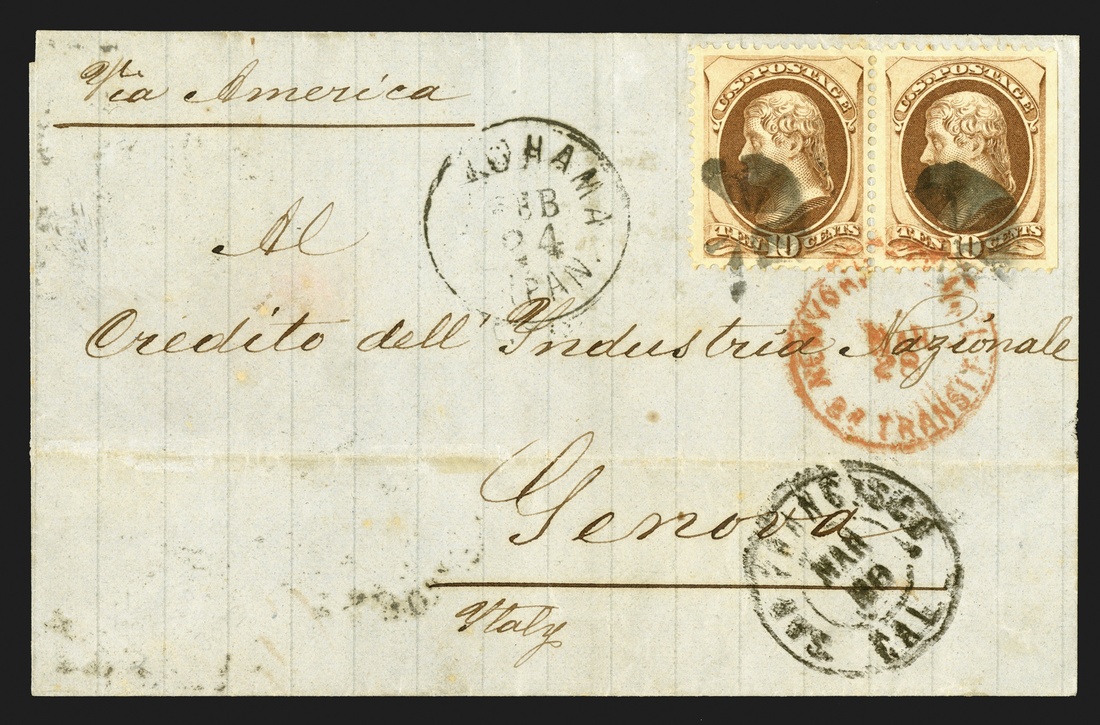 Via America
U.S. POSTAGE
TEN 10 CENTS
U.S. POSTAGE
TEN 10 CENTS
OHAMA
24
PAN.
Al
Credito dell' Industria Nazionale
NEW YORK
28
Br TRANSIT
Genova
SAN FRANCISCO
MAR
CAL
Italy